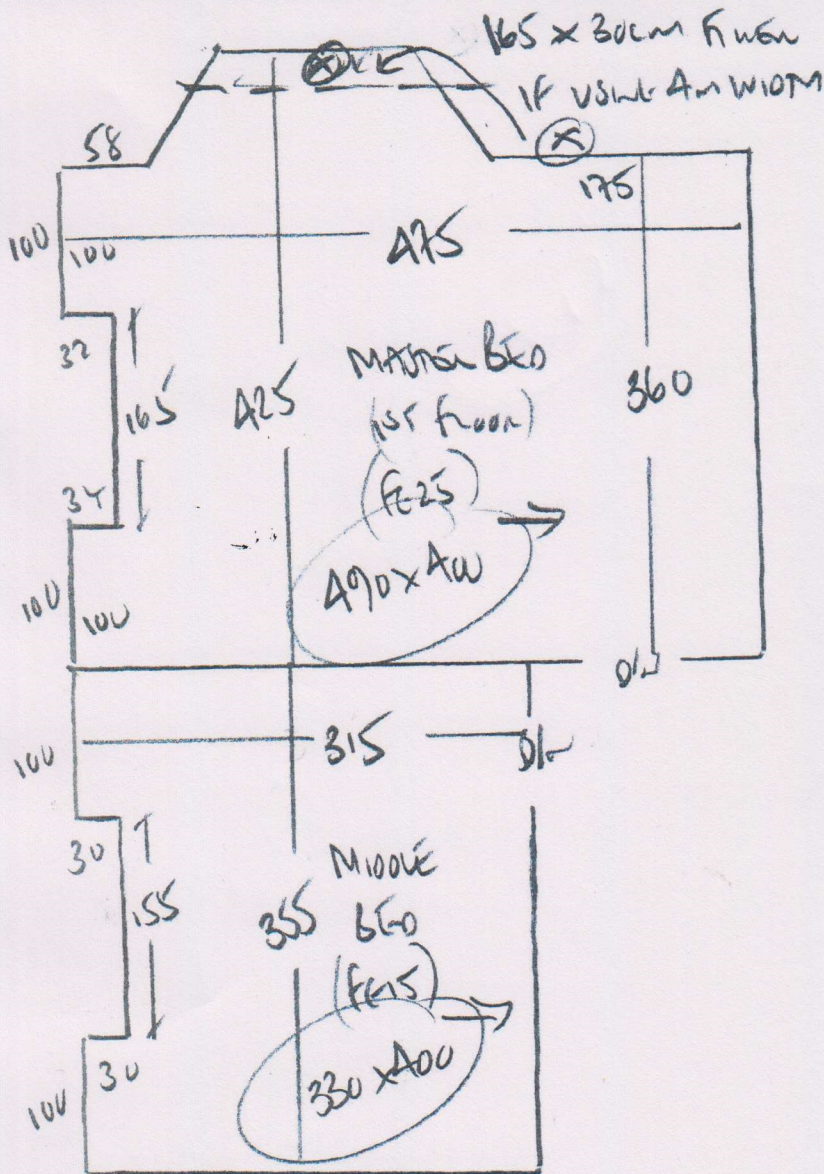 165 x 30cm
IF USING 4m WIDTH
58
175
100
100
475
32
165
425
MASTER BED
360
(1ST FLOOR)
34
(FE25)
490 x 400
100
100
D/W
100
315
D/W
30
155
MIDDLE
355
BED
(FE15)
30
330 x 400
100